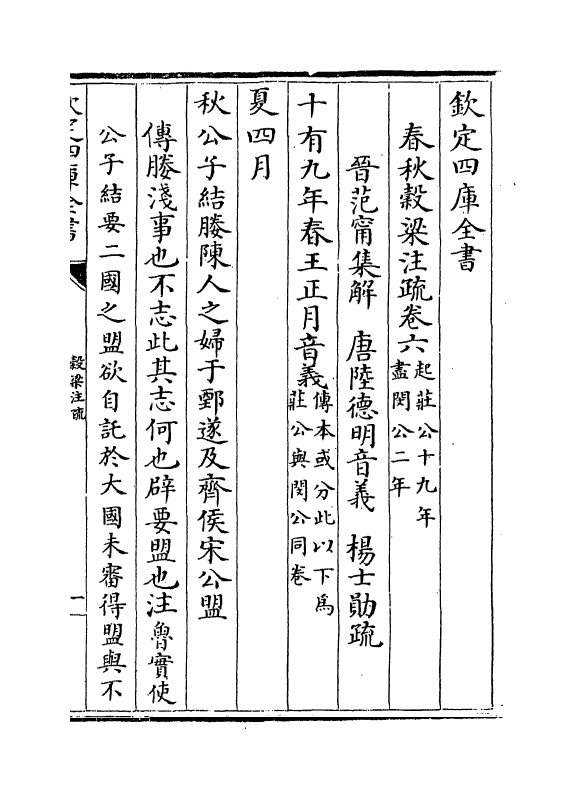 欽定四庫全書
春秋穀梁注疏卷六起莊公十九年
盡閔公二年
晉范甯集解 唐陸德明音義 楊士勛疏
十有九年春王正月音義傳本或分此以下爲
莊公與閔公同卷
夏四月
秋公子結媵陳人之婦于鄄遂及齊侯宋公盟
傳媵淺事也不志此其志何也辟要盟也注魯實使
公子結要二國之盟欲自託於大國未審得盟與不
欽定四庫全書
穀梁注疏
一